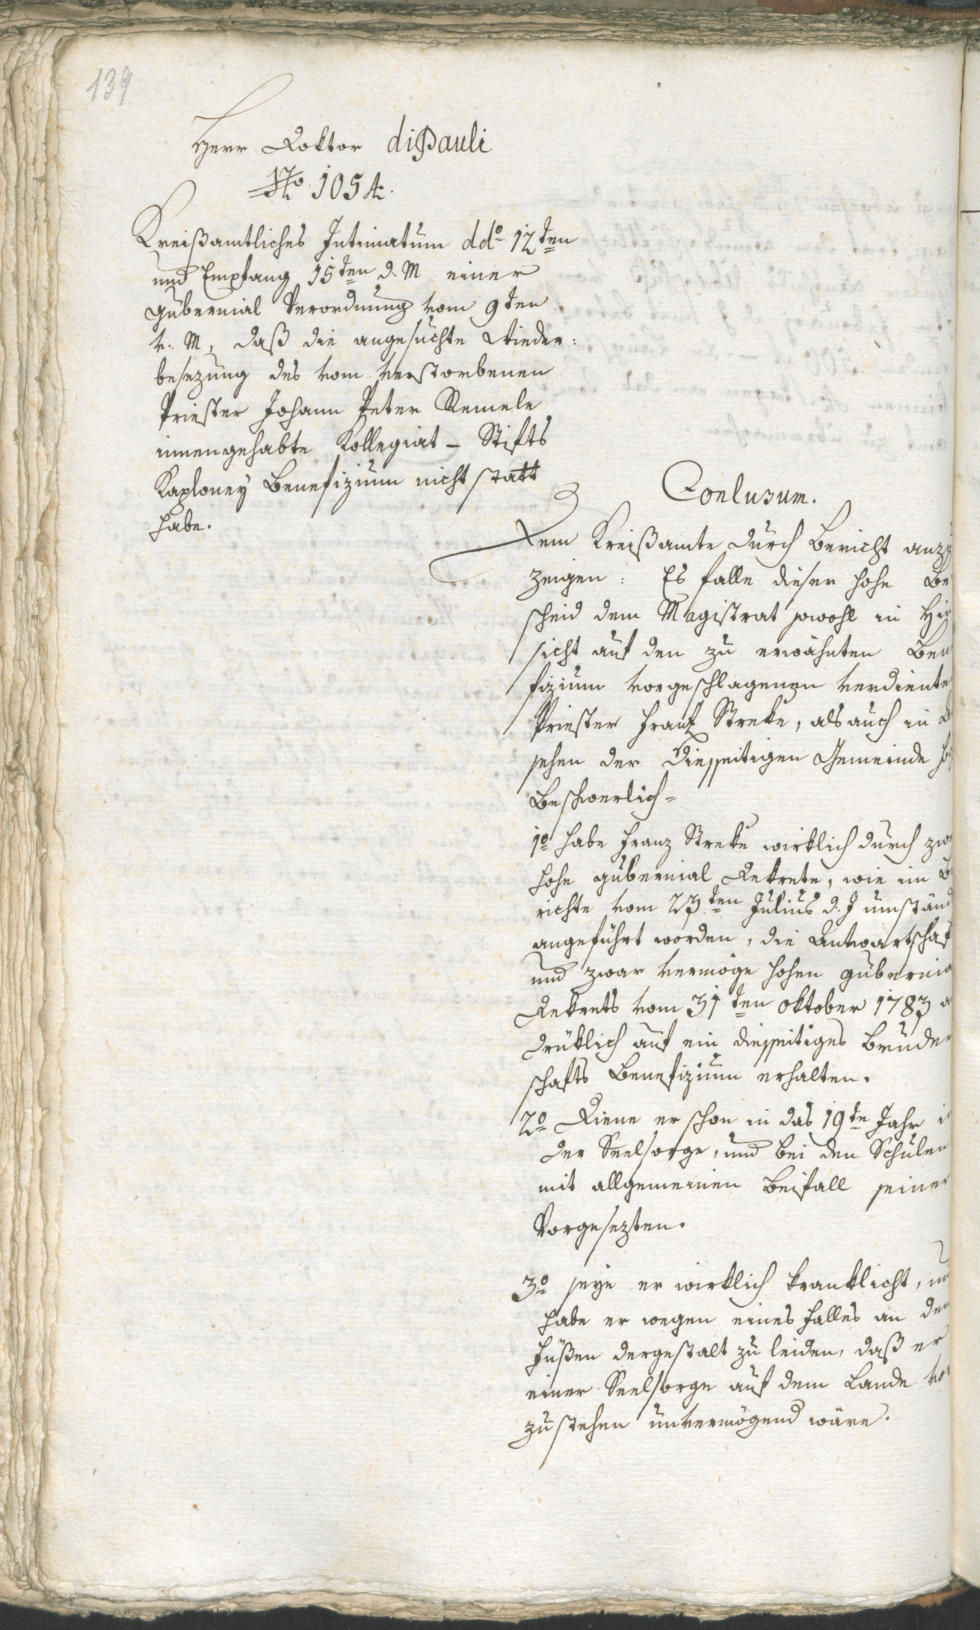 139
Herr Doktor diPauli
No 1054.
Kreißamtliches Intimatum ddo 12ten
und Empfang 15ten d. M einer
gubernial Verordnung vom 9ten
v. M, daß die angesuchte Wieder-
besezung des vom verstorbenen
Priester Johann Peter Remele
innengehabte Kollegiat - Stifts
Kaplaney Benefizium nicht statt
habe.
Conlusum.
Dem Kreißamte durch Bericht anzu
zeigen: Es falle dieser hohe Be
scheid dem Magistrat sowohl in Hin
sicht auf den zu erwähnten Bene
fizium vorgeschlagenen verdiente
Priester Franz Streke, als auch in
sehen der diesseitigen Gemeinde
Beschwerlich=
1o habe Franz Streke wirklich durch zwe
hohe gubernial Dekrete, wie im Be
richte vom 23ten Julius d. J umständ
angeführt worden, die Antwartschaft
und zwar vermöge hohen gubernia
Dekrets vom 31ten Oktober 1783
drüklich auf ein diesseitiges Bruder
schafts Benefizium erhalten.
2o Diene er schon in das 19te Jahr in
der Seelsorge, und bei den Schulen
mit allgemeinen Beifall seiner
Vorgesezten.
3o seye er wirklich kranklicht, un
habe er wegen eines Falles an den
Füßen dergestalt zu leiden, daß er
einer Seelsorge auf dem Lande vor
zustehen unvermögend wäre.